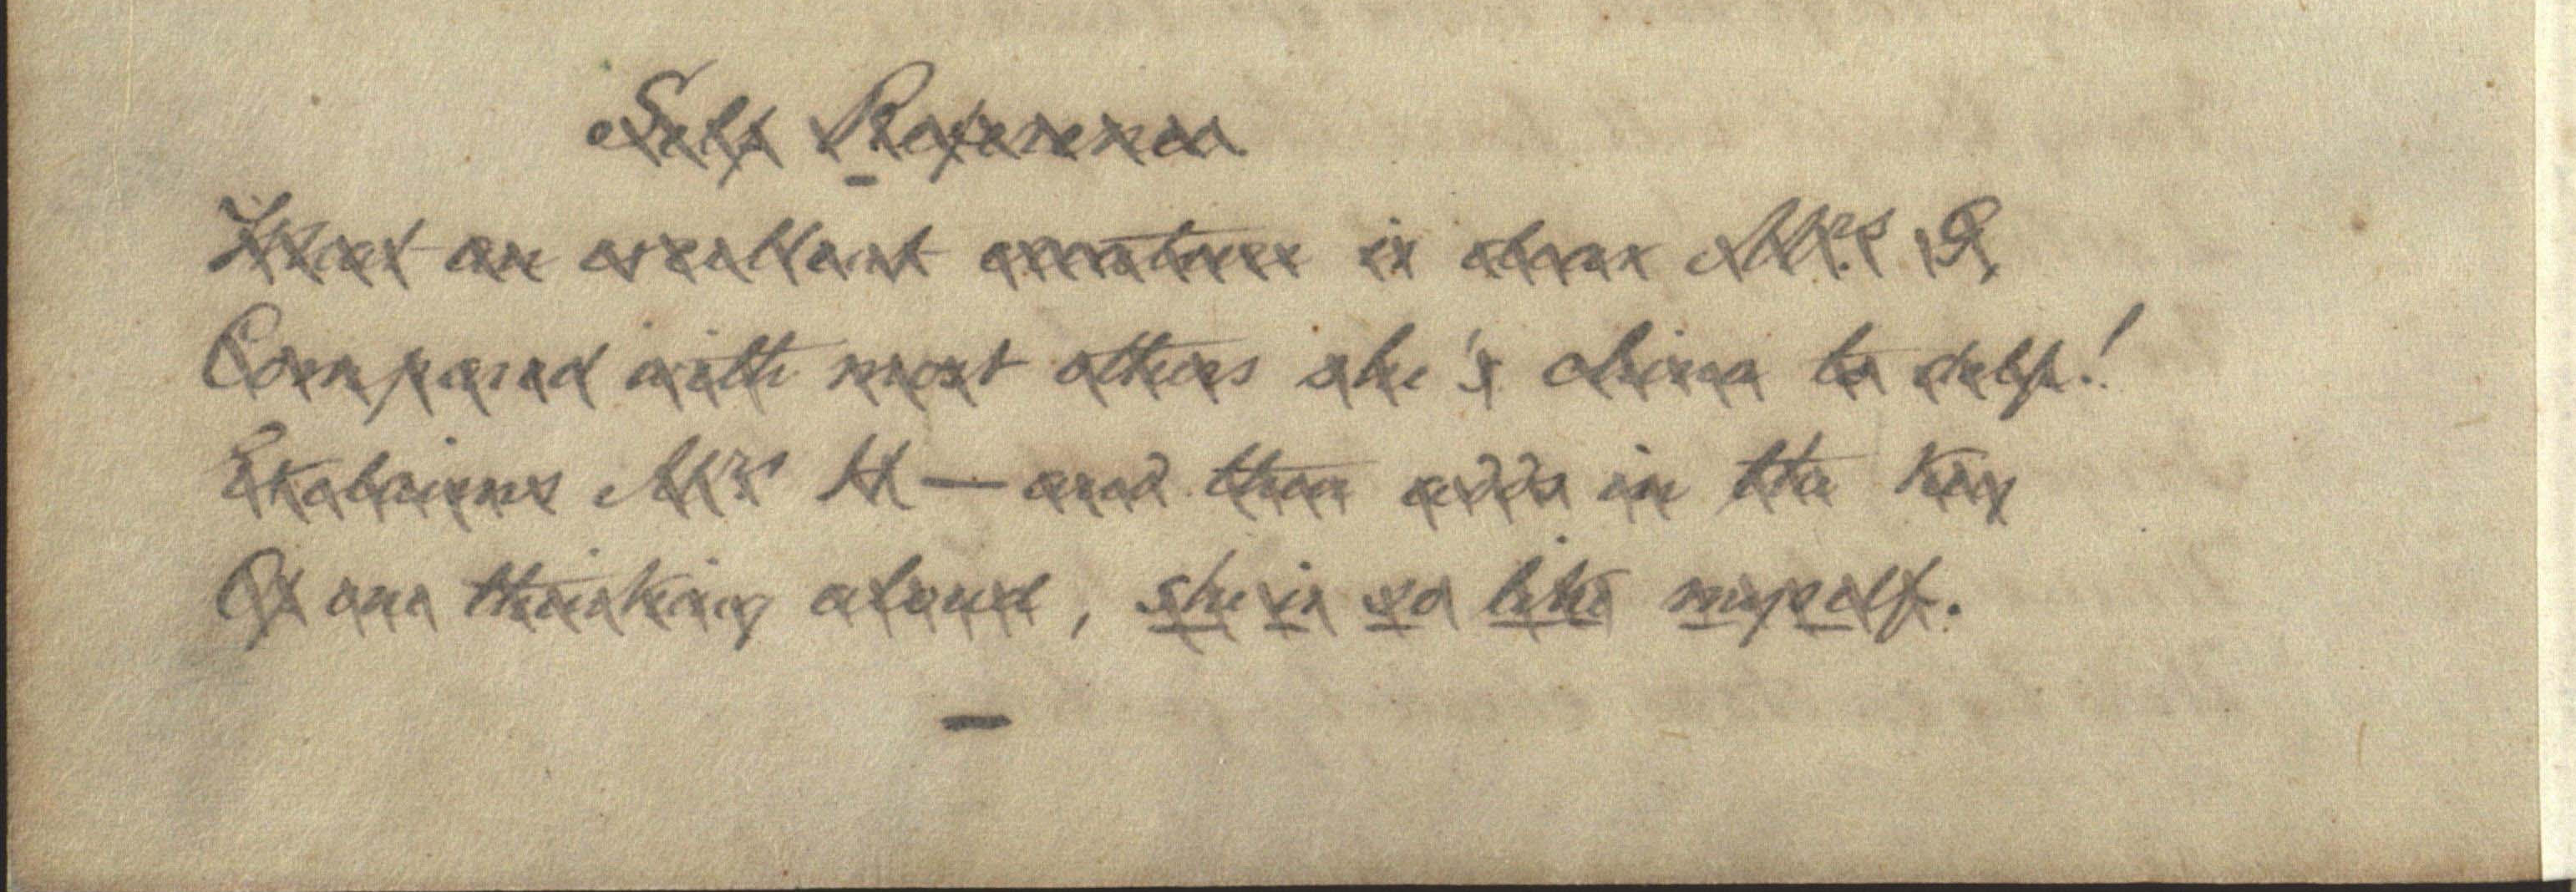 Self Reference
What an excellent creature is dear Mrs. P,
Compared with most others she's china to delf!
Exclaims Mrs H — and then adds in the key
Of one thinking aloud, she is so like myself.